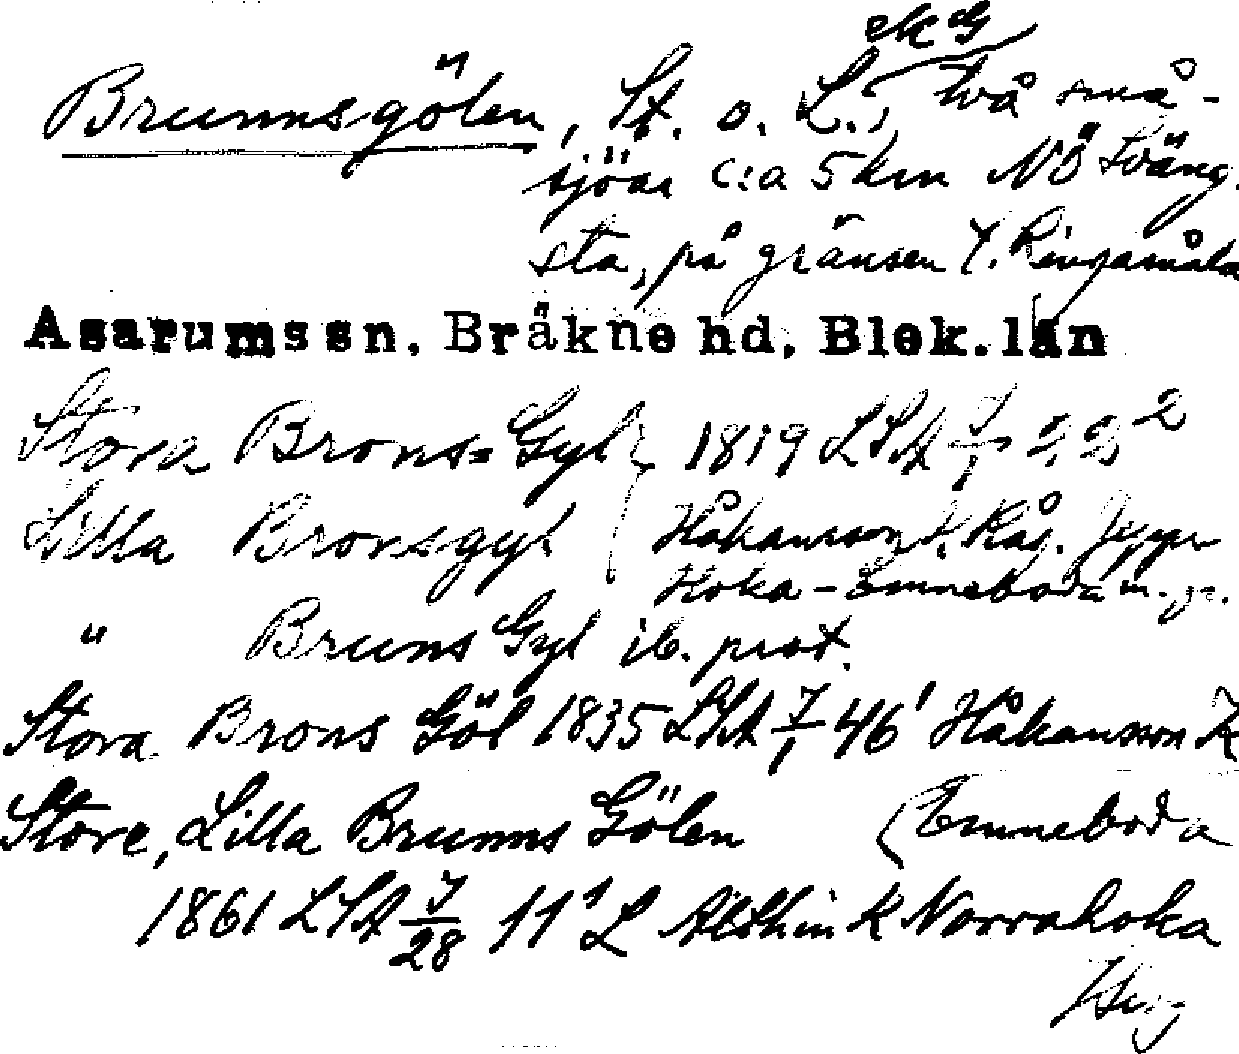 ekG
Brunnsgölen, St. o. L., två små-
sjöar c:a 5 km NÖ Sväng-
sta, på gränsen t. Ringamåla
Asarums sn. Bräkne hd. Blek. län
Stora Brons=Gyl 1819 LSA J/1 22²
Lilla Bronsgyl Håkansson K Råg. Jeppe
Hoka - Emneboda m. fl.
" Bruns Gyl ib. prot.
Stora Brons Göl 1835 LSA J/1 46¹ Håkansson K
Store, Lilla Brunns Gölen (Emneboda
1861 LSA J/28 11¹ L Althin K Norrahoka